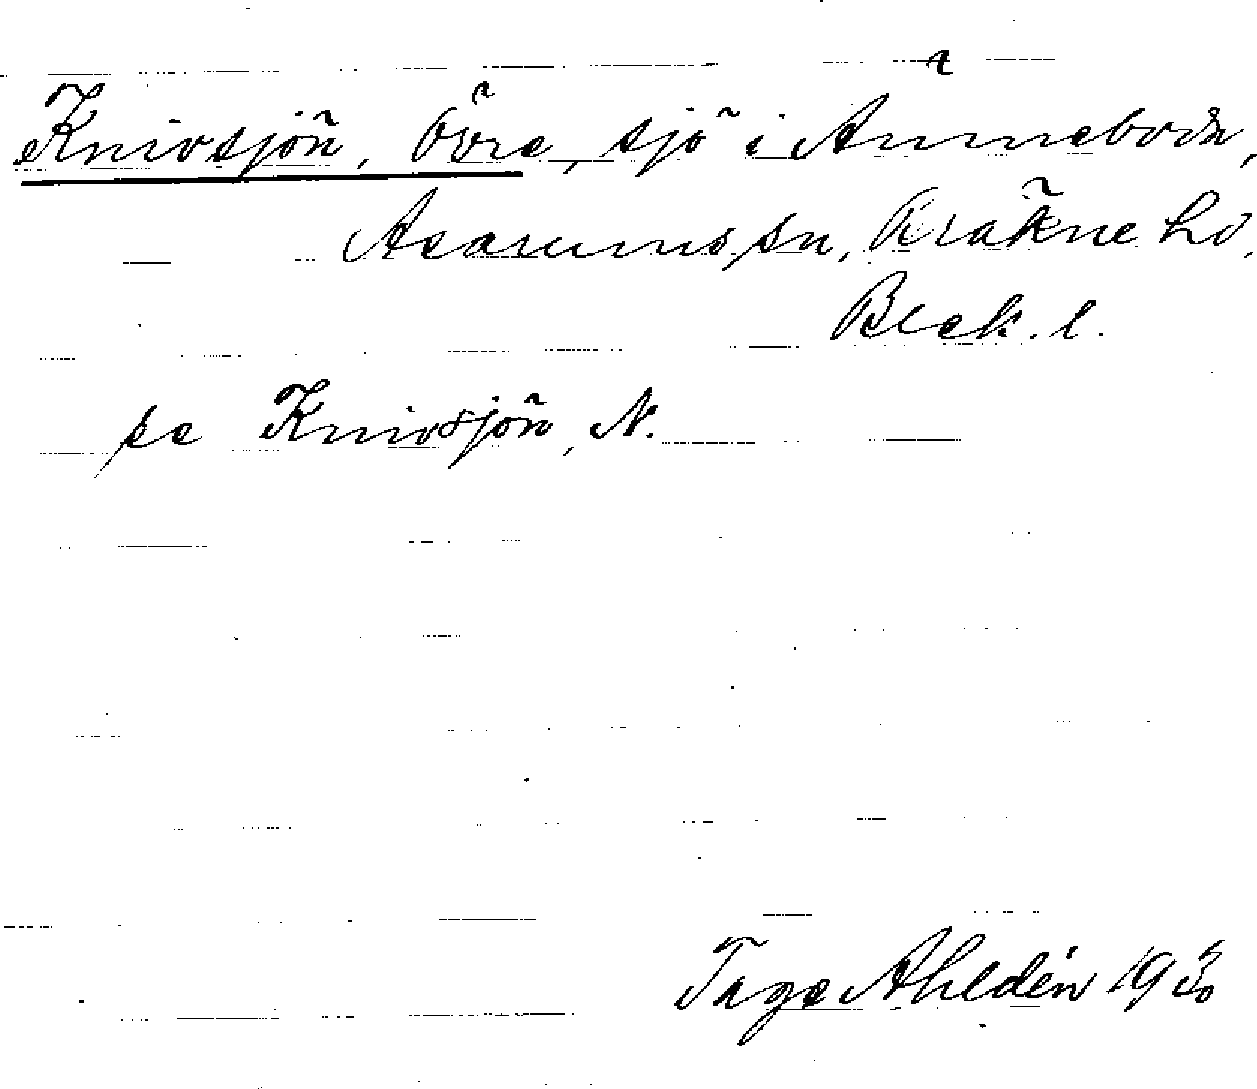 Knivsjön, Övre, sjö i Anneboda,
Asarums sn, Bräkne hd,
Blek. l.
se Knivsjön, N.
Tage Ahldén 1930